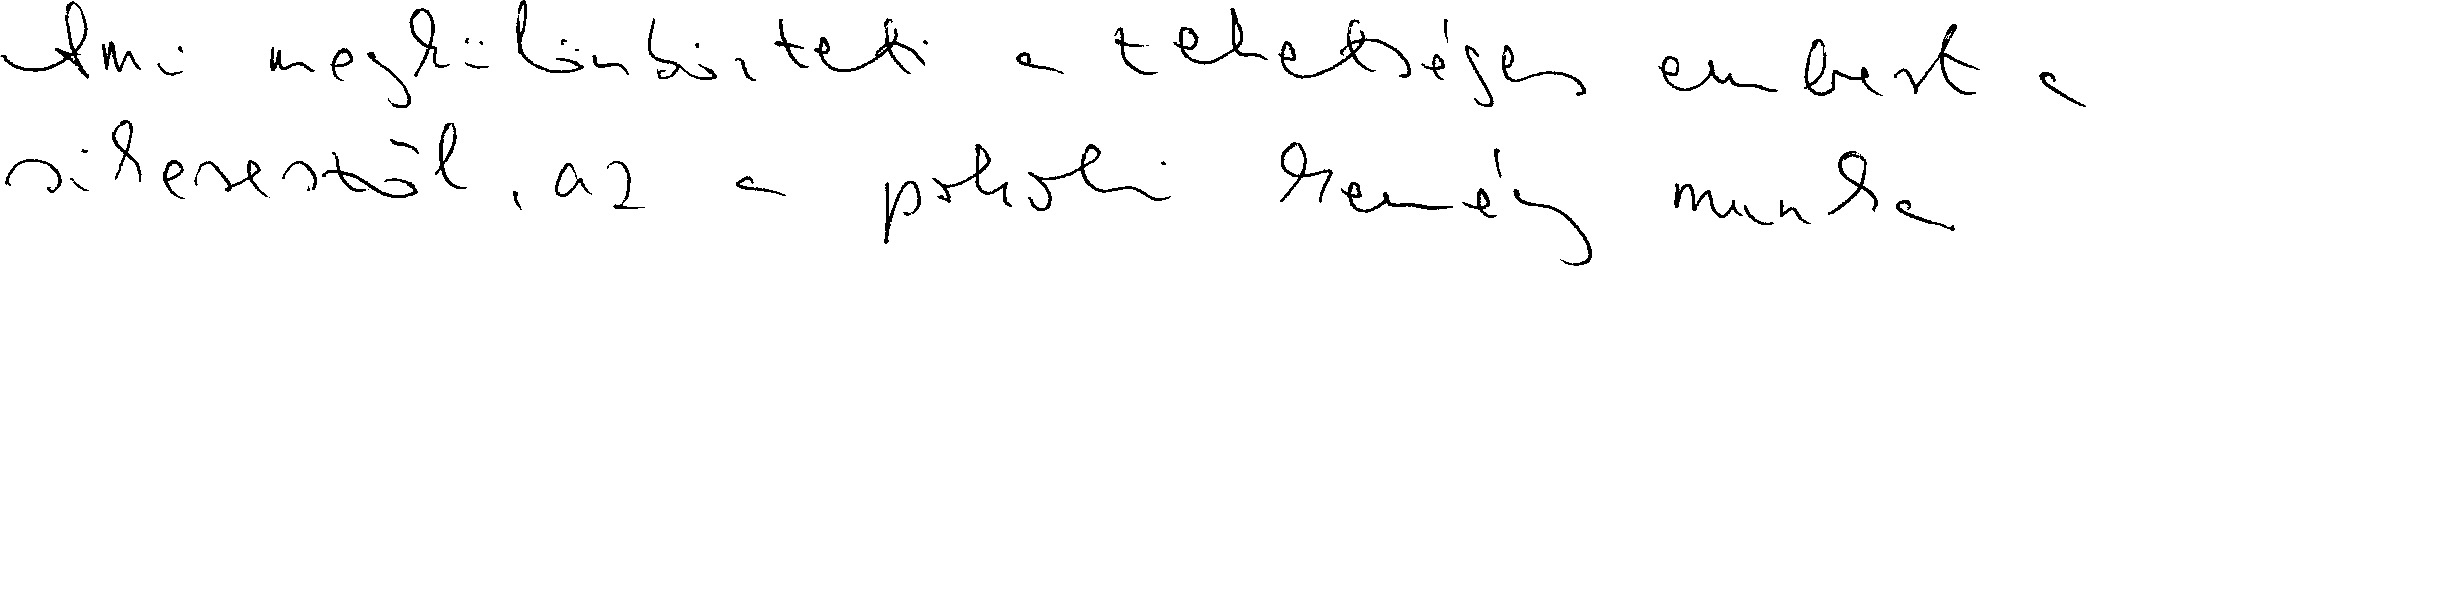 Ami megkülönbözteti a tehetséges embert a
sikerestől, az a pokoli kemény munka